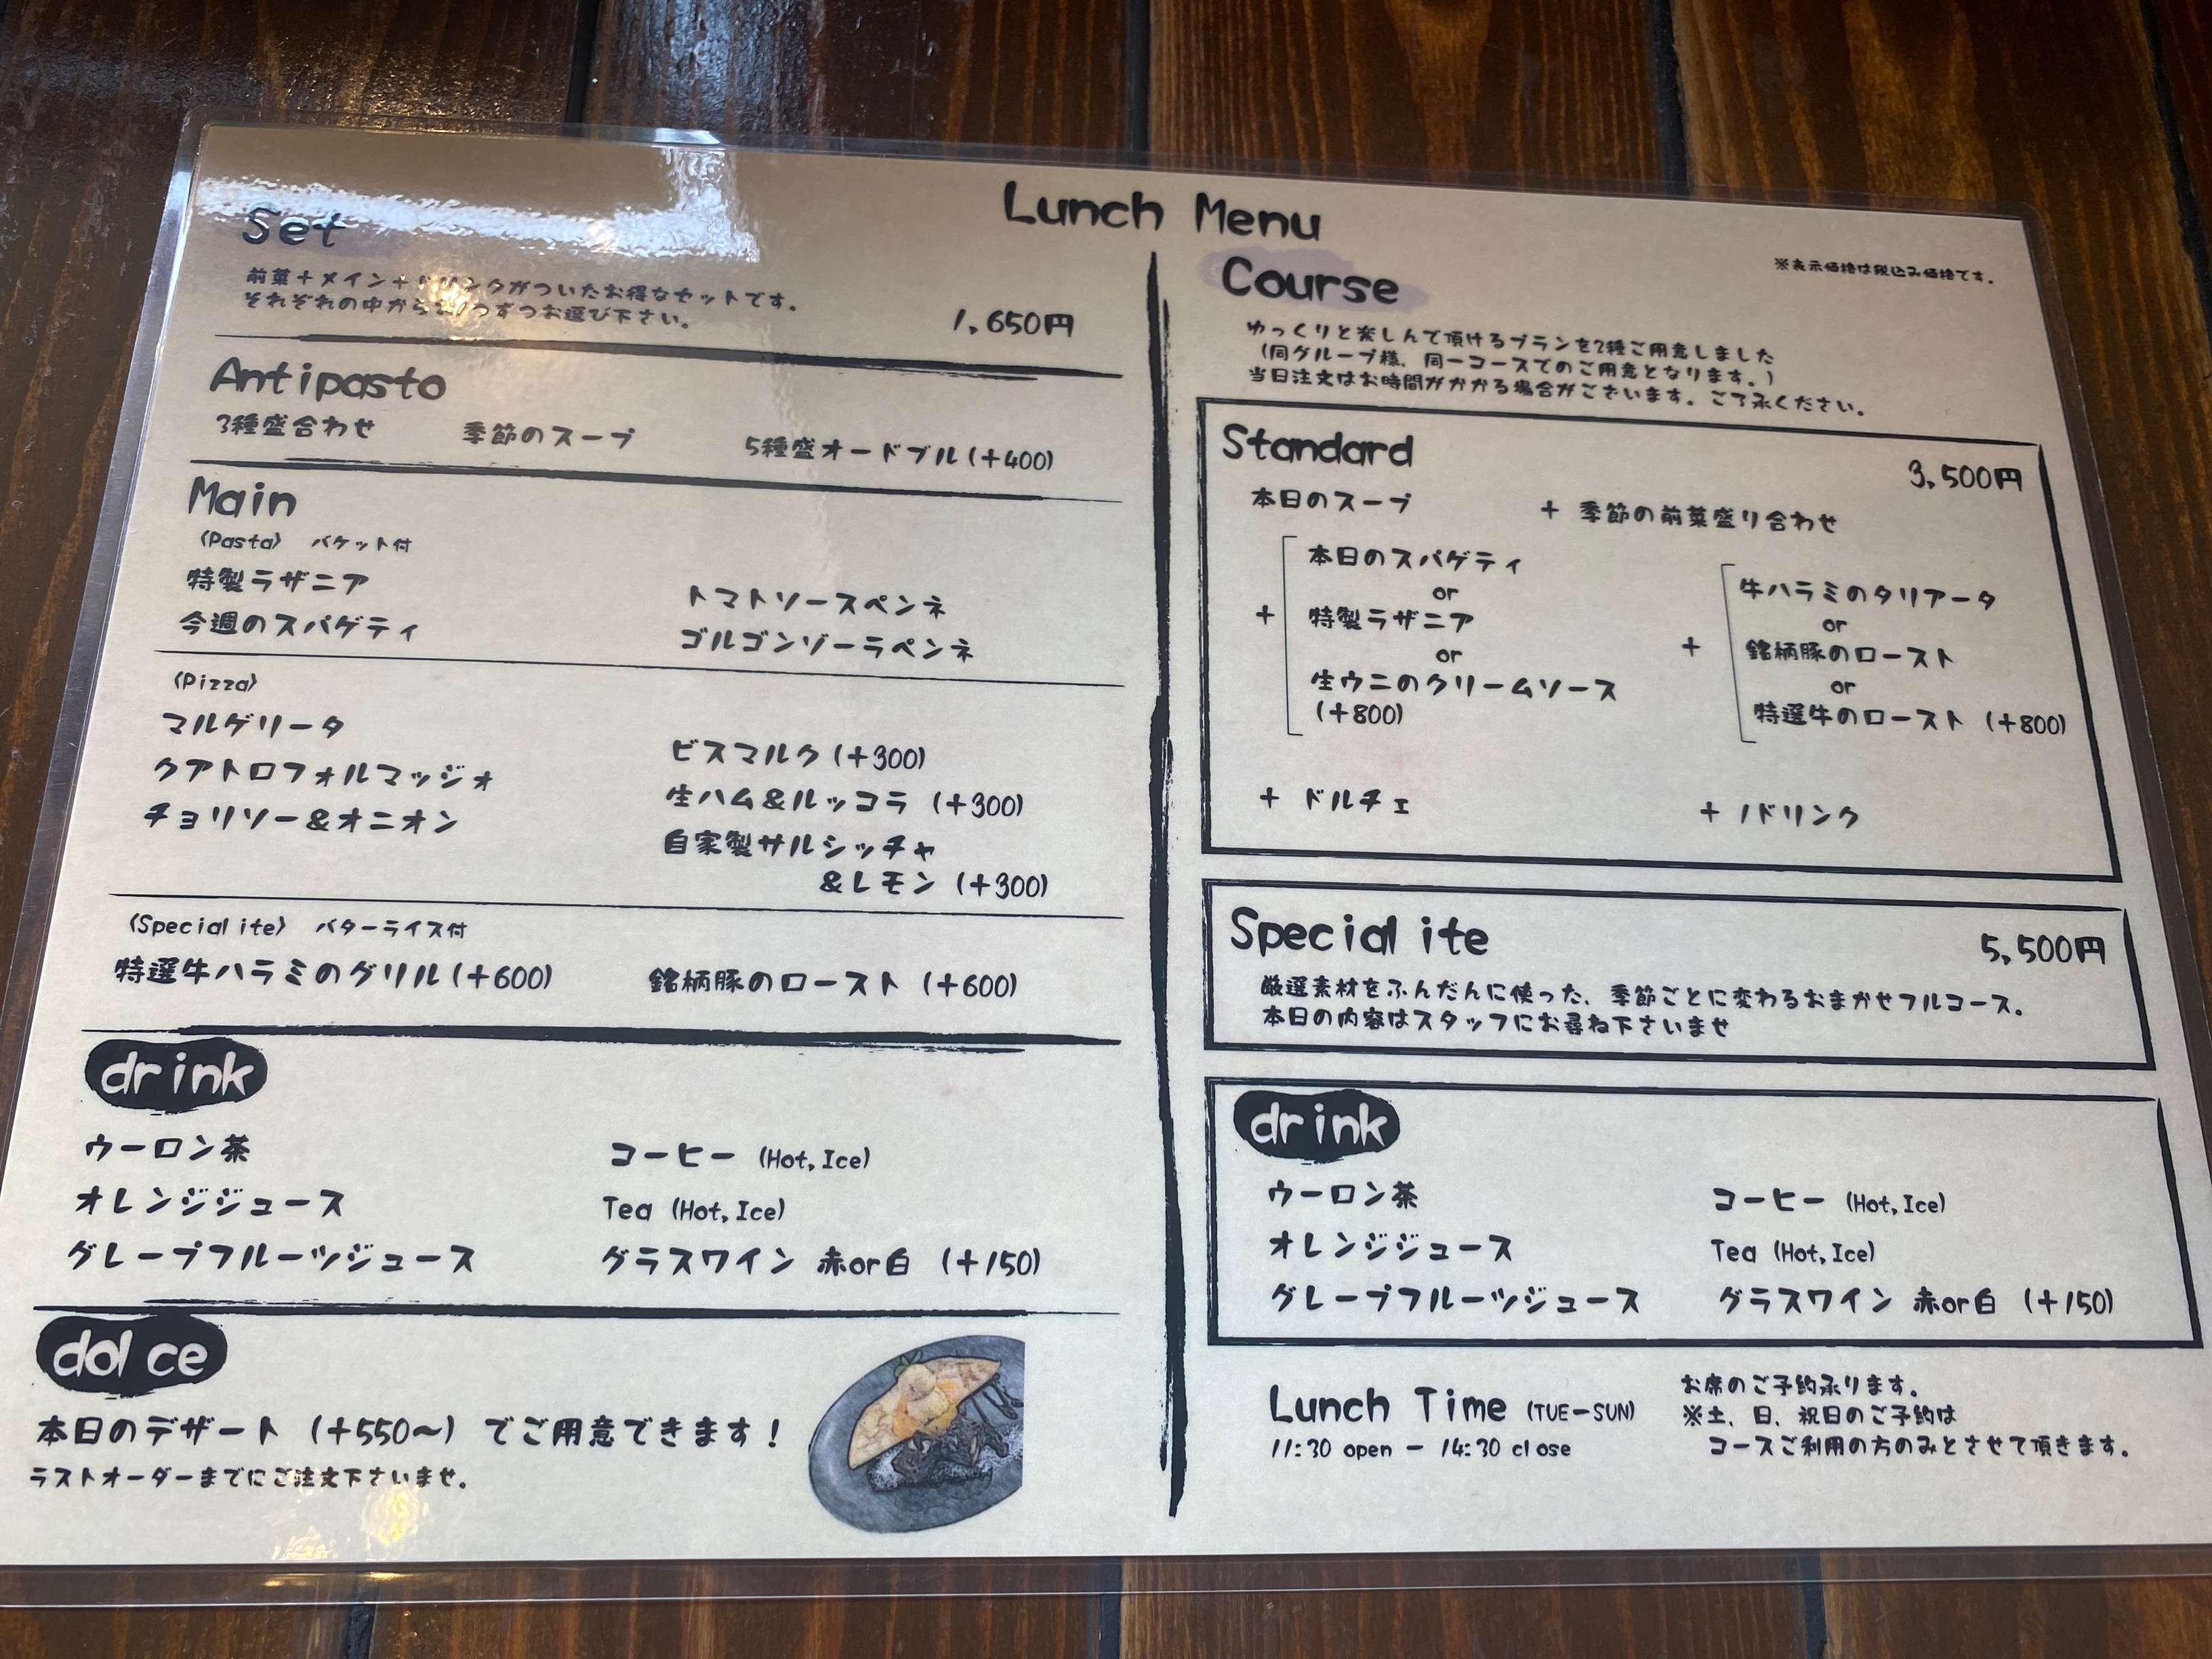 Lunch Menu
Set
前菜+メイン+ドリンクがついたお得なセットです。
それぞれの中から1つずつお選び下さい。
1,650円
Antipasto
3種盛合わせ 季節のスープ 5種盛オードブル(+400)
Main
(Pasta) バケット付
特製ラザニア トマトソースペンネ
今週のスパゲティ ゴルゴンゾーラペンネ
(Pizza)
マルゲリータ ビスマルク(+300)
クアトロフォルマッジォ 生ハム&ルッコラ (+300)
チョリソー&オニオン 自家製サルシッチャ
&レモン (+300)
(Specialite) バターライス付
特選牛ハラミのグリル(+600) 銘柄豚のロースト (+600)
drink
ウーロン茶 コーヒー (Hot,Ice)
オレンジジュース Tea (Hot,Ice)
グレープフルーツジュース グラスワイン 赤or白 (+150)
dolce
本日のデザート (+550~) でご用意できます!
ラストオーダーまでにご注文下さいませ。
※表示価格は税込み価格です。
Course
ゆっくりと楽しんで頂けるプランを2種ご用意しました
(同グループ様、同一コースでのご用意となります。)
当日注文はお時間がかかる場合がございます。ご了承ください。
Standard
3,500円
本日のスープ + 季節の前菜盛り合わせ
+ 本日のスパゲティ
or
特製ラザニア
or
生ウニのクリームソース
(+800)
+ 牛ハラミのタリアータ
or
銘柄豚のロースト
or
特選牛のロースト (+800)
+ ドルチェ + 1ドリンク
Specialite
5,500円
厳選素材をふんだんに使った、季節ごとに変わるおまかせフルコース。
本日の内容はスタッフにお尋ね下さいませ
drink
ウーロン茶 コーヒー (Hot,Ice)
オレンジジュース Tea (Hot,Ice)
グレープフルーツジュース グラスワイン 赤or白 (+150)
Lunch Time (TUE-SUN)
11:30 open - 14:30 close
お席のご予約承ります。
※土、日、祝日のご予約は
コースご利用の方のみとさせて頂きます。